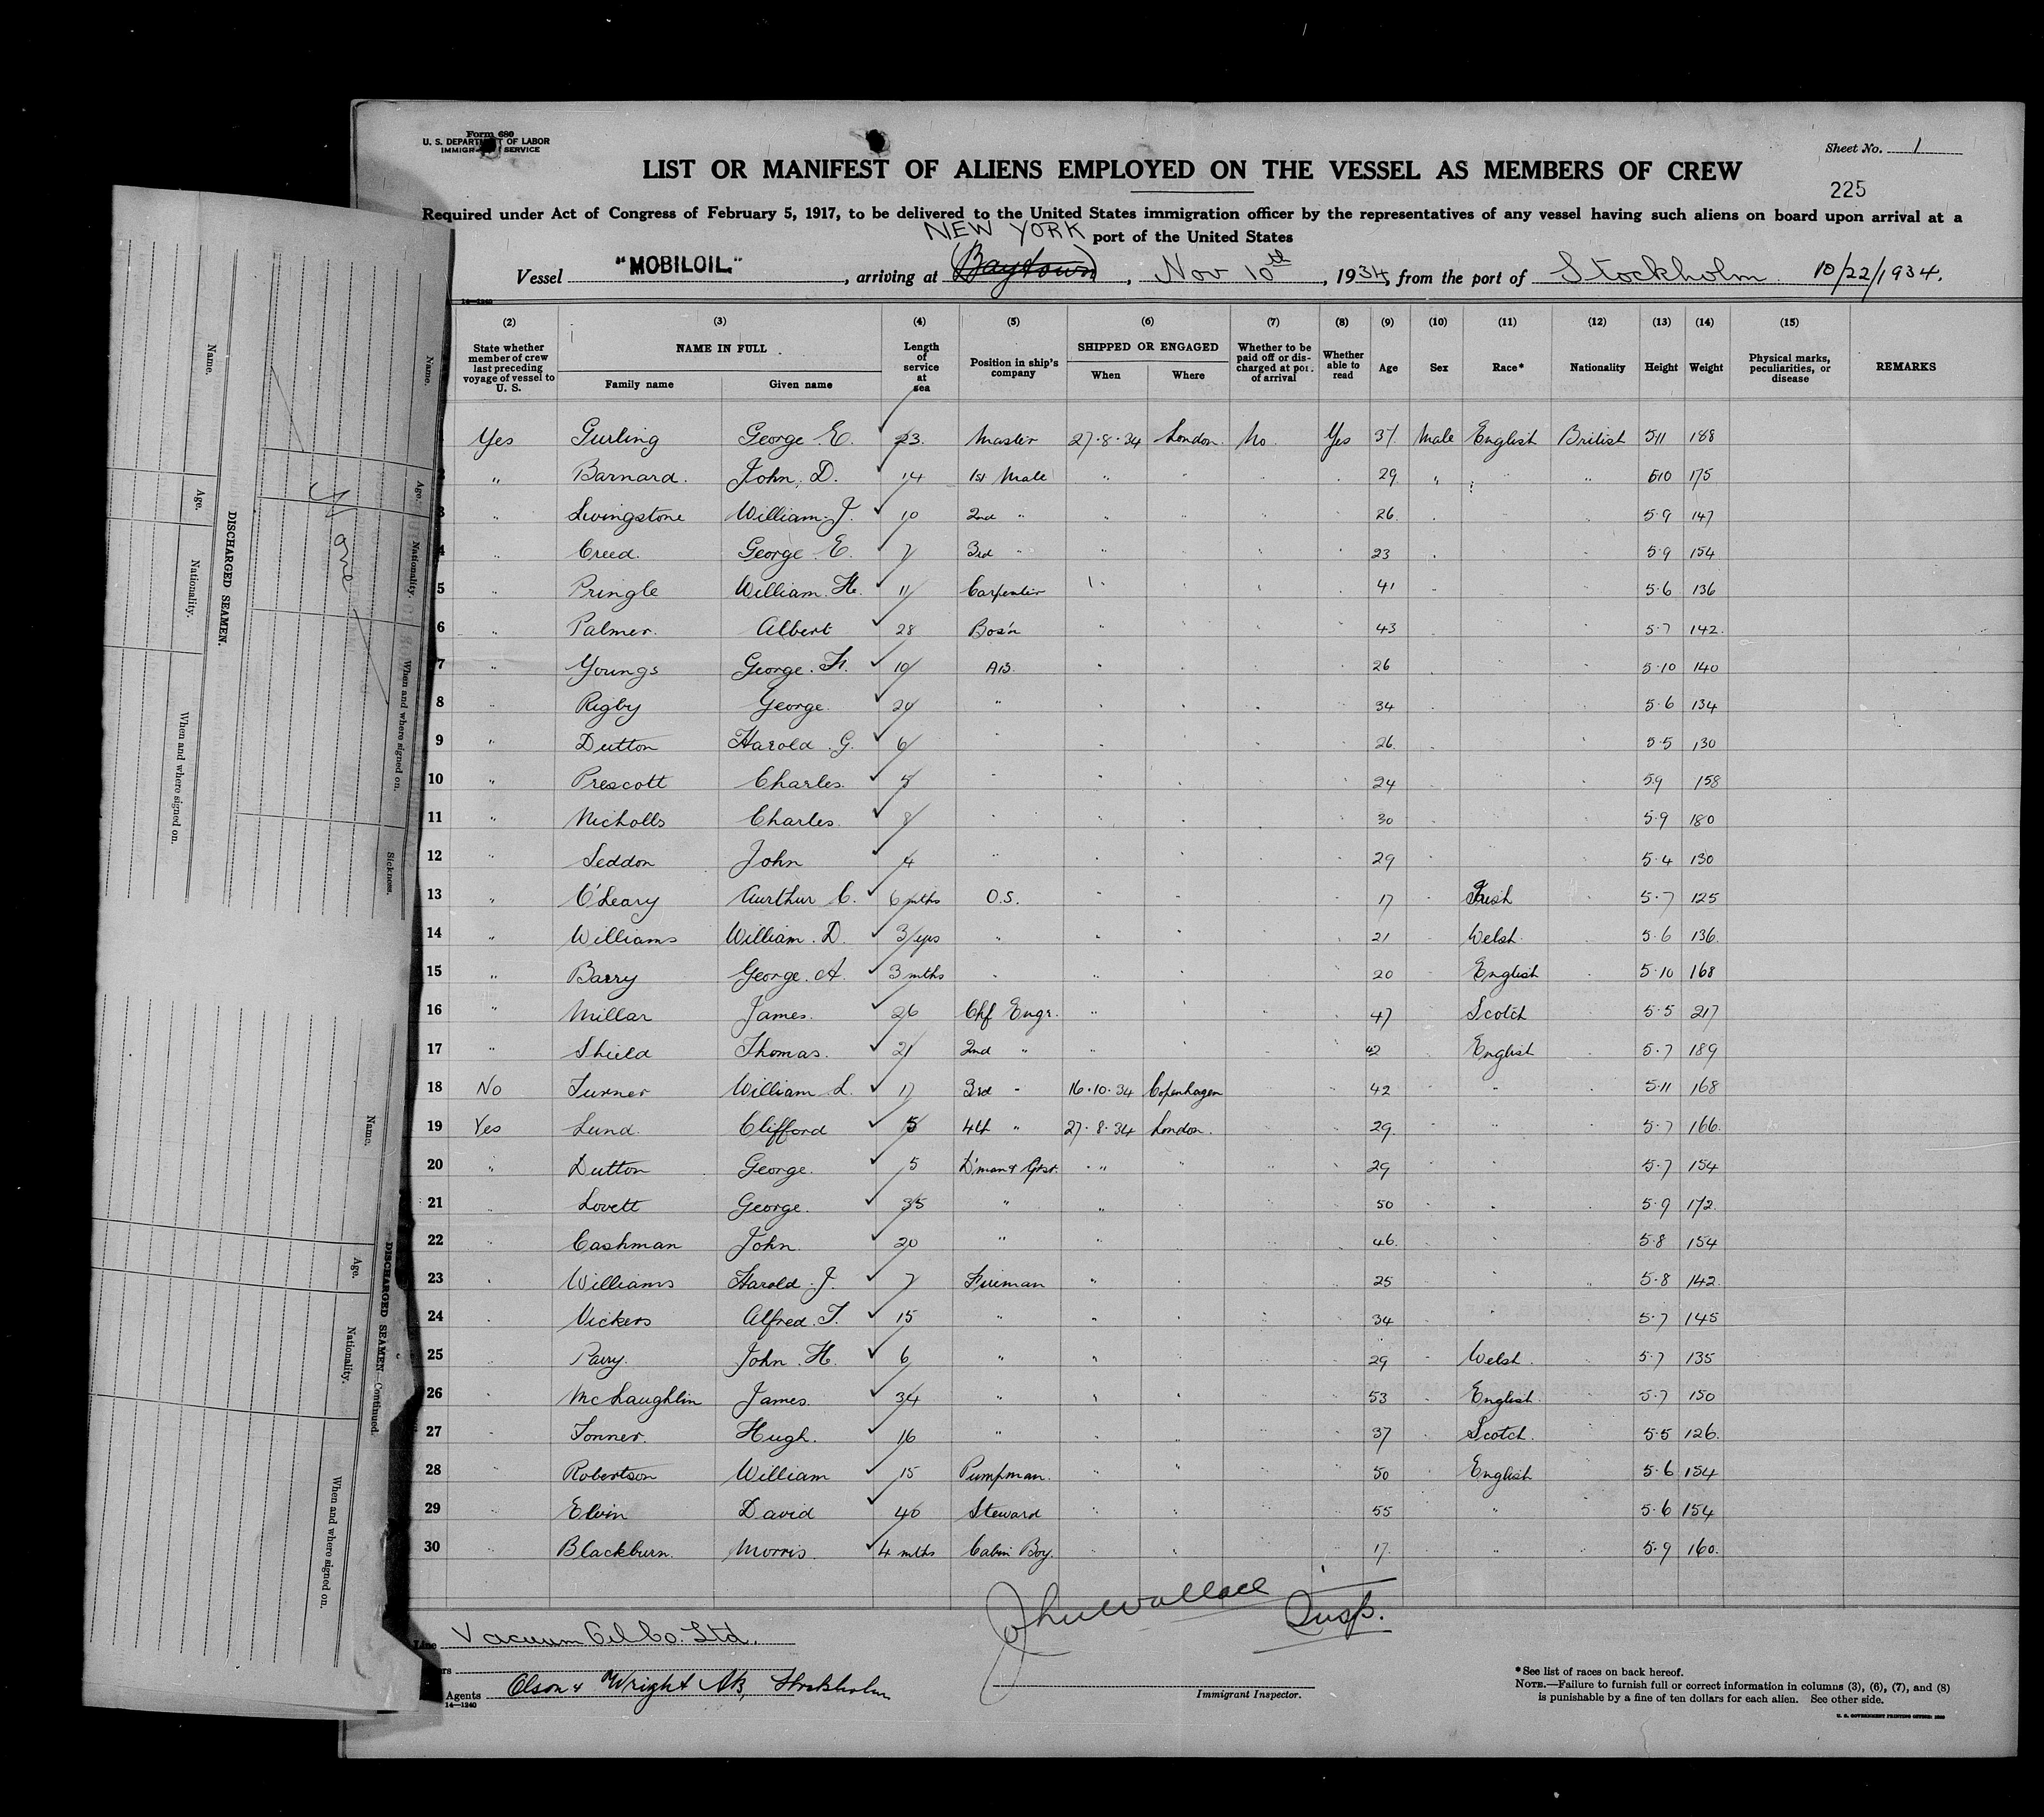 Form 680
U. S. DEPARTMENT OF LABOR
IMMIGR SERVICE
Sheet No. 1
LIST OR MANIFEST OF ALIENS EMPLOYED ON THE VESSEL AS MEMBERS OF CREW
225
Required under Act of Congress of February 5, 1917, to be delivered to the United States immigration officer by the representatives of any vessel having such aliens on board upon arrival at a
NEW YORK port of the United States
Vessel "MOBILOIL", arriving at (Baytown), Nov 10th, 1934, from the port of Stockholm 10/22/1934.
14—1240
(2) (3) (4) (5) (6) (7) (8) (9) (10) (11) (12) (13) (14) (15)
State whether member of crew last preceding voyage of vessel to U. S.
NAME IN FULL
Family name Given name
Length of service at sea
Position in ship's company
SHIPPED OR ENGAGED
When Where
Whether to be paid off or discharged at port of arrival
Whether able to read
Age Sex Race* Nationality Height Weight
Physical marks, peculiarities, or disease
REMARKS
Yes Gurling George E. 23. Master 27.8.34 London. No. Yes 37 Male English British 511 188
" Barnard. John, D. 14 1st Mate " " 29 " " " 510 175
3 " Livingstone William J. 10 2nd " " 26 5.9 147
4 " Creed. George. E. 7 3rd " " 23 5.9 154
5 " Pringle William. H. 11 Carpenter " 41 5.6 136
6 " Palmer. Albert 28 Bos'n " 43 5.7 142.
7 " Youngs George. H. 10 A.B. " 26 5.10 140
8 " Rigby George. 20 " " 34 5.6 134
9 " Dutton Harold. G. 6 " " 26. 5.5 130
10 " Prescott Charles. 5 " " 24 59 158
11 " Nicholls Charles. 8 " " 30 5.9 180
12 " Seddon John 4 " " 29 5.4 130
13 " O'Leary Aurthur C. 6 mths O.S. " 17 Irish 5.7 125
14 " Williams William. D. 3 yrs " " 21 Welsh. 5.6 136.
15 " Barry George. A. 3 mths " " 20 English 5.10 168
16 " Millar James. 26 Chf Engr. " 47 Scotch 5.5 217
17 " Shield Thomas. 21 2nd " " 42 English 5.7 189
18 No Turner William L. 17 3rd " 16.10.34 Copenhagen 42 " 5.11 168
19 Yes Lund. Clifford 5 4th " 27.8.34 London. 29. " 5.7 166.
20 " Dutton George. 5 D'man & Grsr. " " 29 " 5.7 154
21 " Lovett George. 35 " " 50 " 5.9 172.
22 " Cashman John. 20 " " 46. " 5.8 154
23 " Williams Harold. J. 7 Fireman " 25 " 5.8 142.
24 " Vickers Alfred. T. 15 " " 34 " 5.7 145
25 " Parry. John. H. 6 " " 29 Welsh. 5.7 135
26 " McLaughlin James. 34 " " 53 English. 5.7 150
27 " Tonner. Hugh. 16 " " 37 Scotch. 5.5 126.
28 " Robertson William 15 Pumpman. " 50 English 5.6 154
29 " Elvin David 40 Steward " 55 " 5.6 154
30 " Blackburn. Morris. 4 mths Cabin Boy. " 17. " 5.9 160.
John Wallace Insp.
Immigrant Inspector.
Line Vacuum Oil Co. Ltd.
Agents Olson & Wright AB, Stockholm
14—1240
*See list of races on back hereof.
NOTE.—Failure to furnish full or correct information in columns (3), (6), (7), and (8)
is punishable by a fine of ten dollars for each alien. See other side.
DISCHARGED SEAMEN.
Name. Age. Nationality. When and where signed on.
Name. Age. Nationality. When and where signed on. Sickness.
None
DISCHARGED SEAMEN—Continued.
Name. Age. Nationality. When and where signed on.